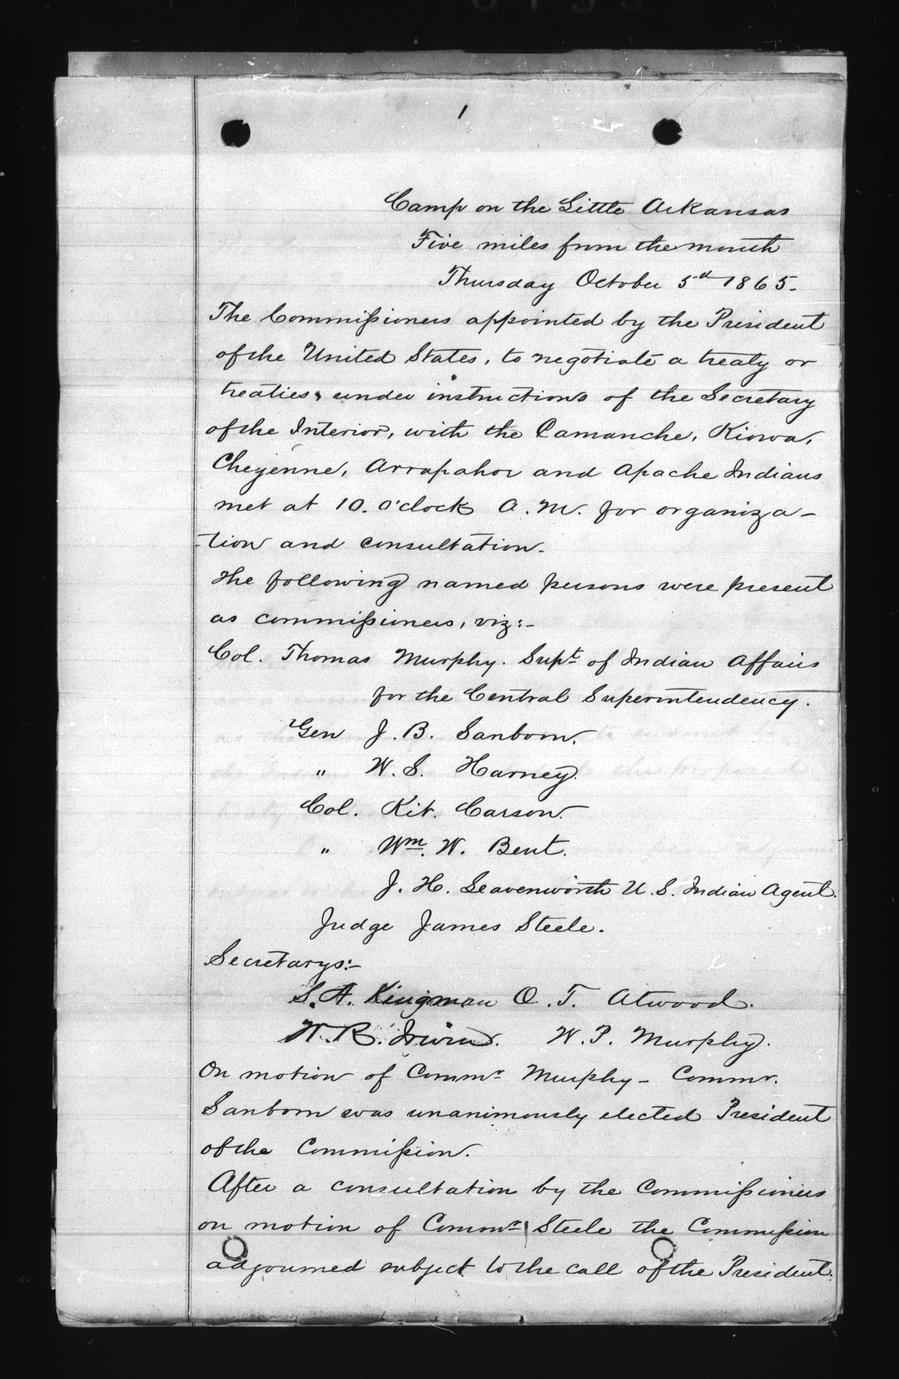 1
Camp on the Little Arkansas
Five miles from the mouth
Thursday October 5th 1865.
The Commissioners appointed by the President
of the United States, to negotiate a treaty or
treaties, under instructions of the Secretary
of the Interior, with the Camanche, Kiowa,
Cheyenne, Arrapahoe and Apache Indians
met at 10. O'clock A.M. for organiza-
-tion and consultation.
The following named persons were present
as commissioners, viz:-
Col. Thomas Murphy. Supt. of Indian Affairs
for the Central Superintendency.
Gen J. B. Sanborn.
" W. S. Harney.
Col. Kit. Carson.
" Wm. W. Bent.
J. H. Leavenworth U. S. Indian Agent.
Judge James Steele.
Secretarys:-
S. A. Kingman O. T. Atwood.
W. R. Irwin. W. P. Murphy.
On motion of Commr Murphy - Commr.
Sanborn was unanimously elected President
of the Commission.
After a consultation by the Commissioners
on motion of Commr Steele the Commission
adjourned subject to the call of the President.